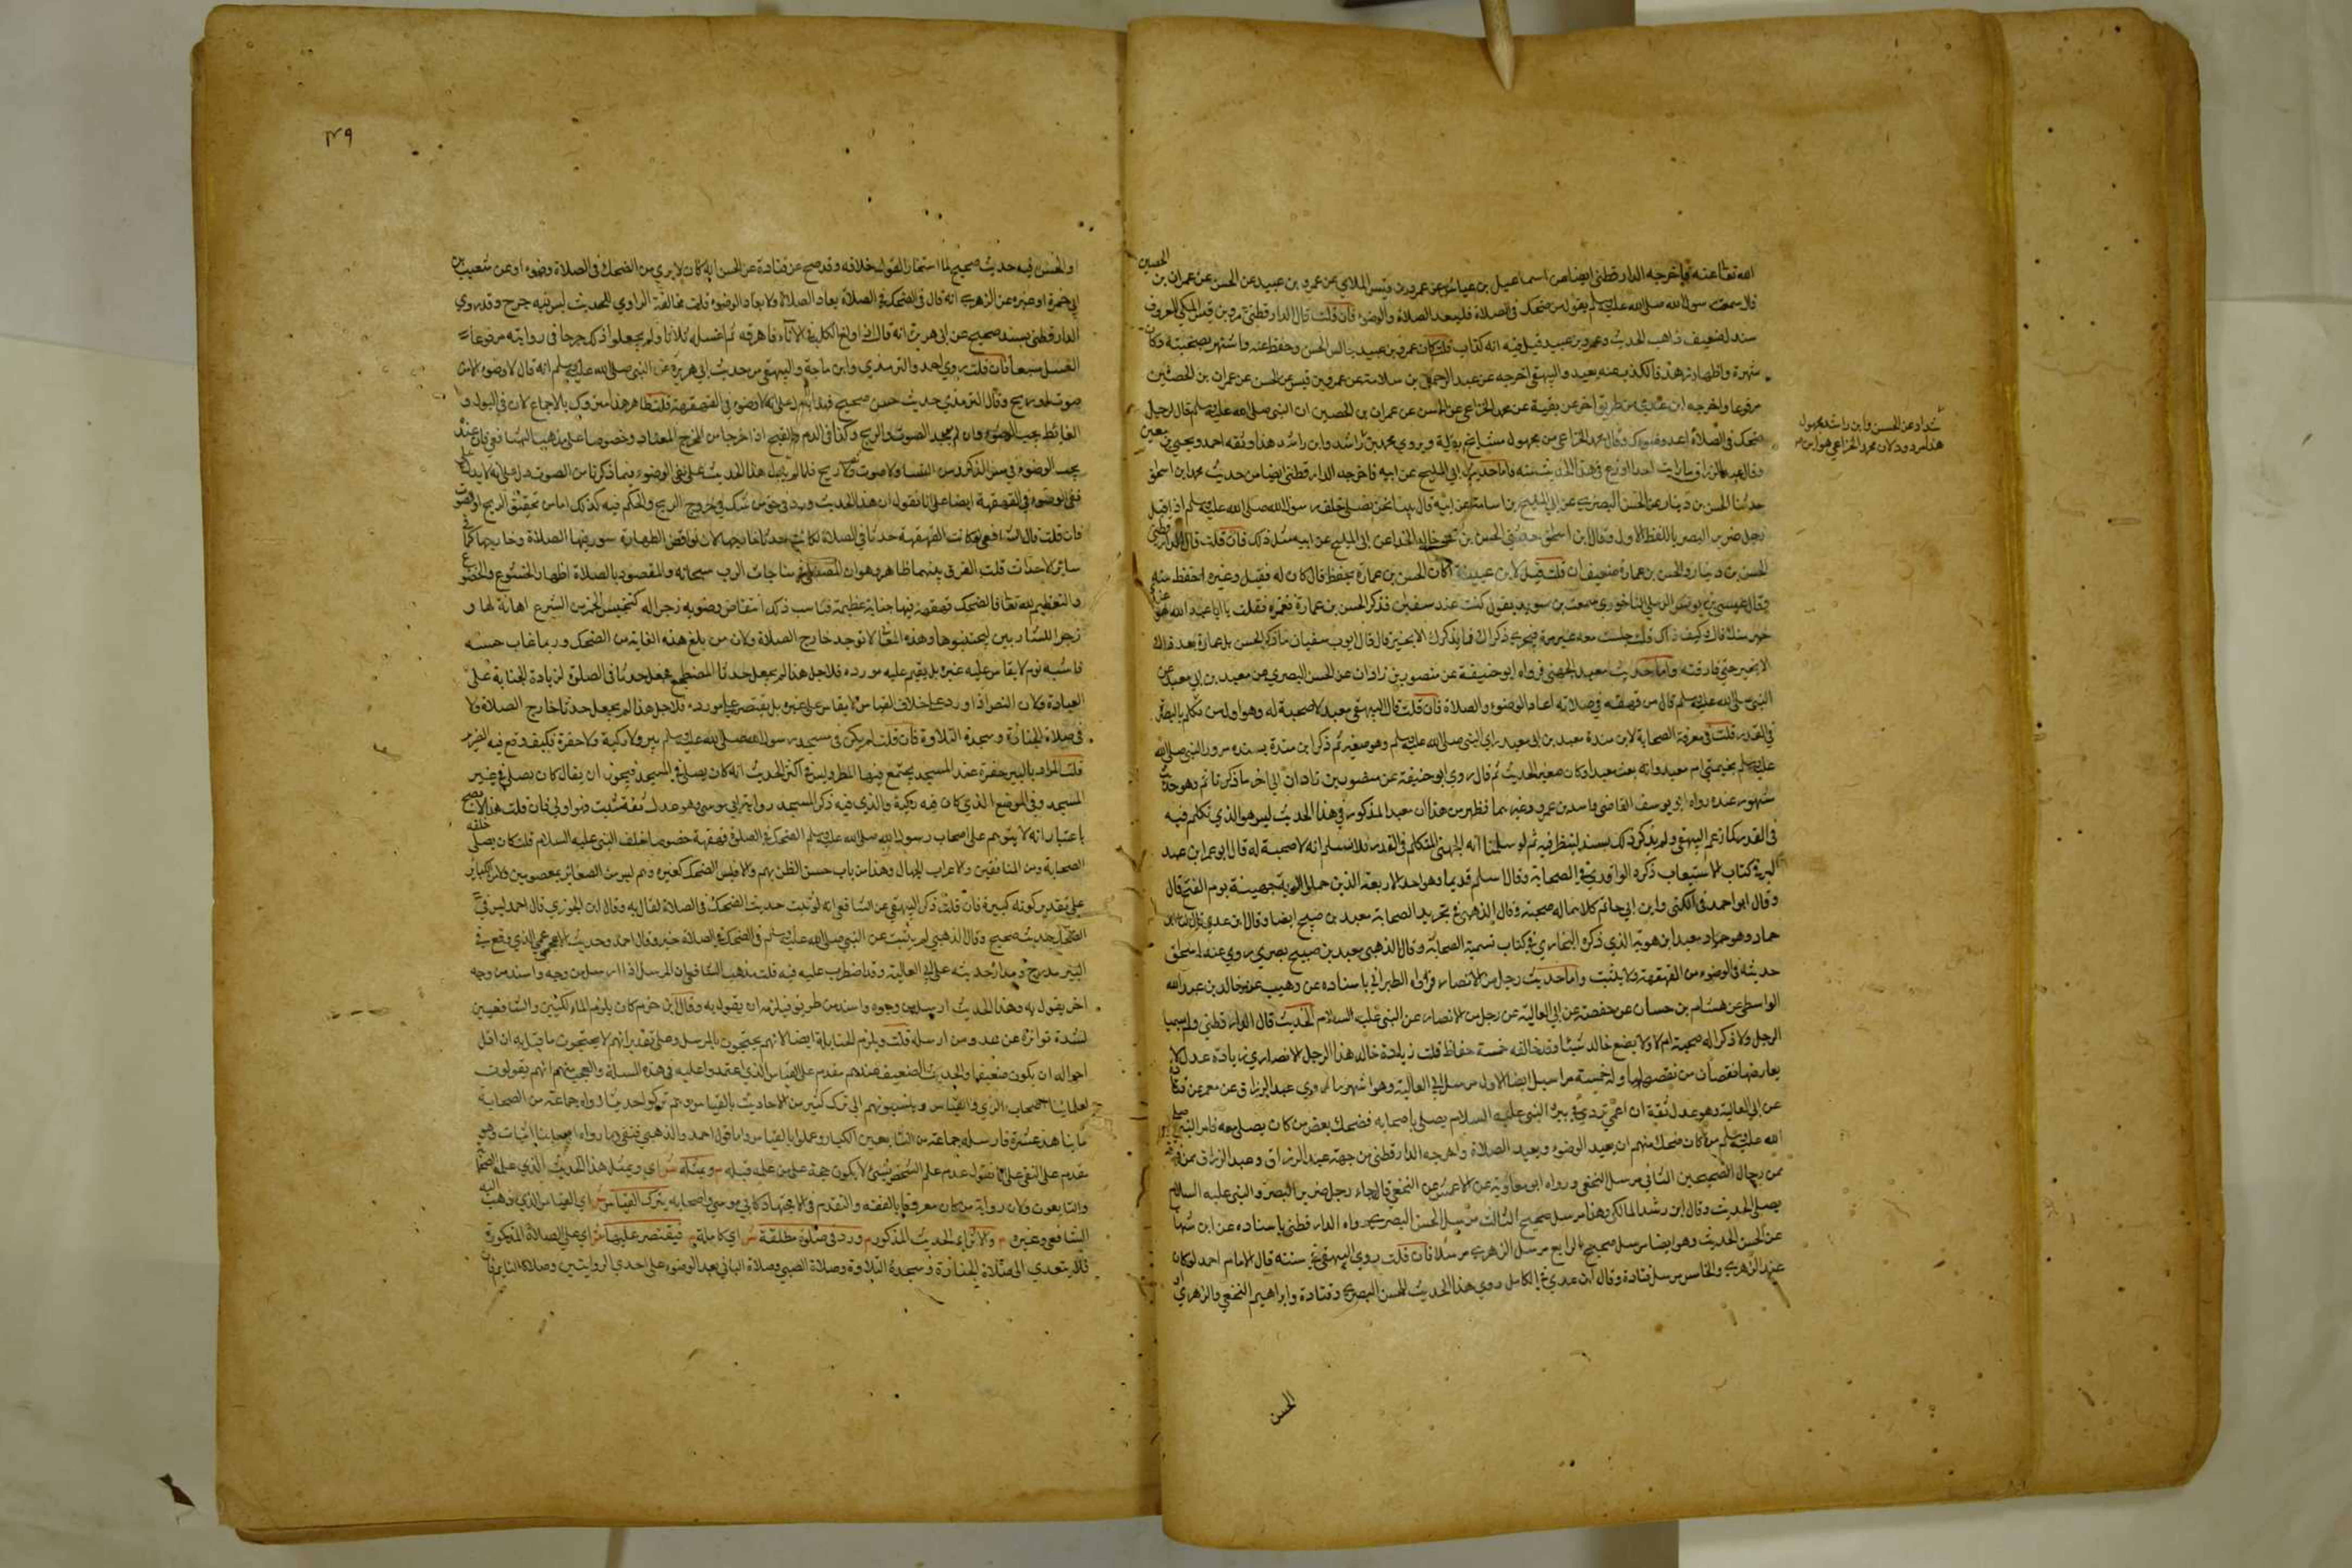 الله تعالى عنه فأخرجه الدارقطني ايضا من اسماعيل بن عياش عن عمرو بن قيس الملائي عن عمرو بن عبيد عن الحسن عن عمران بن الحصين
قال سمعت رسول الله صلى الله عليه وسلم يقول من ضحك في الصلاة فليعد الصلاة والوضوء فان قلت قال الدارقطني عمرو بن قيس المكي المعروف
سندل ضعيف ذاهب الحديث وعمرو بن عبيد قيل فيه انه كذاب قلت كان عمرو بن عبيد جالس الحسن وحفظ عنه واشتهر بصحبته وكان
شهرة واظهار زهد فالكذب عنه بعيد والبيهقي اخرجه عن عبد الرحمن بن سلام عن عمرو بن قيس عن الحسن عن عمران بن الحصين
مرفوعا واخرجه ابن عدي من طريق اخر عن بقية عن محمد الخزاعي عن الحسن عن عمران بن الحصين ان النبي صلى الله عليه وسلم قال لرجل
ضحك في الصلاة اعد وضوءك وقال محمد الخزاعي من مجهول مشايخ بقية ويروي محمد بن راشد وابن راشد هذا وثقه احمد ويحيى بن معين
وقال عبد الرزاق ما رايت احدا اورع في هذا الحديث منه واما حديث ابي المليح عن ابيه فاخرجه الدارقطني ايضا من حديث محمد بن اسحق
حدثنا الحسن بن دينار عن الحسن البصري عن ابي المليح بن اسامة عن ابيه قال بينا نحن نصلي خلف رسول الله صلى الله عليه وسلم اذ اقبل
رجل ضرير البصر باللفظ الاول وقال ابن اسحق حدثني الحسن بن خالد الحذا عن ابي المليح عن ابيه مثل ذلك فان قلت قال الدارقطني
الحسن بن دينار والحسن بن عمارة ضعيفان قلت قيل لابن عيينة أكان الحسن بن عمارة يحفظ قال كان له فضل وغيره احفظ منه
وقال عيسى بن يونس الرملي الفاخوري سمعت بن سويد يقول كنت عند سفيان فذكر الحسن بن عمارة فغمزه فقلت يا ابا عبد الله هو عندي
خير منك قال وكيف ذاك قلت جلست معه غير مرة فيجري ذكرك فما يذكرك الا بخير قال قال ايوب سفيان ما ذكر الحسن بن عمارة بعد ذلك
الا بخير حتى فارقته واما حديث معبد الجهني فرواه ابو حنيفة عن منصور بن زاذان عن الحسن البصري عن معبد بن ابي معبد عن
النبي صلى الله عليه وسلم قال من قهقه في صلاته اعاد الوضوء والصلاة فان قلت قال البيهقي معبد لا صحبة له وهو اول من تكلم بالبصرة
في القدر قلت في معرفة الصحابة لابن مندة معبد بن ابي معبد راى النبي صلى الله عليه وسلم وهو صغير ثم ذكر ابن مندة بسنده مرور النبي صلى الله
عليه وسلم بخيمتي ام معبد وانه بعث معبدا وكان صغير الحديث ثم قال روى ابو حنيفة عن منصور بن زاذان الى اخر ما ذكرنا ثم وهو حديث
مشهور عنه رواه ابو يوسف القاضي واسد بن عمرو وغيرهما فظهر من هذا ان معبد المذكور في هذا الحديث ليس هو الذي تكلم فيه
في القدر كما زعم البيهقي ولم يذكر ذلك بسند لينظر فيه ثم لو سلمنا انه الجهني المتكلم في القدر فلا نسلم انه لا صحبة له قال ابو عمر ابن عبد
البر في كتاب الاستيعاب ذكره الواقدي في الصحابة وقال اسلم قديما وهو احد الاربعة الذين حملوا الوية جهينة يوم الفتح قال
وقال ابو احمد في الكنى وابن ابي حاتم كلاهما له صحبة وقال الذهبي في تجريد الصحابة معبد بن صبيح ايضا وقال ابن عدي قال لنا ابن
حماد وهو معبد ابن هوذة الذي ذكره البخاري في كتاب تسمية الصحابة وقال الذهبي معبد بن صبيح بصري روى عنه اسحق
حديثه في الوضوء من القهقهة ولا يثبت واما حديث رجل من الانصار فرواه الطبراني باسناده عن وهيب عن خالد بن عبد الله
الواسطي عن هشام بن حسان عن حفصة عن ابي العالية عن رجل من الانصار عن النبي عليه السلام الحديث قال الدارقطني ولم يسم
الرجل ولا ذكر اله صحبة ام لا ولا يضع خالد شيئا وقد خالفه خمسة حفاظ قلت زيادة خالد هذا الرجل الانصاري زيادة عدل لا
يعارضها نقصان من نقصها واما وله خمسة مراسيل ايضا الاول مرسل ابي العالية وهو اشهرها روى عبد الرزاق عن معمر عن قتادة
عن ابي العالية وهو عدل ثقة ان اعمى تردى في بير والنبي عليه السلام يصلي باصحابه فضحك بعض من كان يصلي معه فامر النبي صلى
الله عليه وسلم من كان ضحك منهم ان يعيد الوضوء ويعيد الصلاة واخرجه الدارقطني من جهة عبد الرزاق وعبد الرزاق فمن فوقه
من رجال الصحيحين الثاني مرسل النخعي ورواه ابو معاوية عن الاعمش عن النخعي قال جاء رجل ضرير البصر والنبي عليه السلام
يصلي الحديث وقال ابن رشد المالكي وهذا مرسل صحيح الثالث مرسل الحسن البصري رواه الدارقطني باسناده عن ابن شهاب
عن الحسن الحديث وهو ايضا مرسل صحيح الرابع مرسل الزهري مرسلا فان قلت روى البيهقي في سننه قال الامام احمد لو كان
عند الزهري والخامس مرسل قتادة وقال ابن عدي في الكامل روى هذا الحديث الحسن البصري وقتادة وابراهيم النخعي والزهري
الحسن
شداد عن الحسن وابن راشد مجهول
هذا مردود لان محمد الخزاعي هو ابن
٤٩
او الحسن فيه حديث صحيح لما استحاز القول بخلافه وقد صح عن قتادة عن الحسن انه كان لا يرى من الضحك في الصلاة وضوء او عن شعيب بن
ابي حمزة او غيره عن الزهري انه قال في الضحك في الصلاة يعاد الصلاة ولا يعاد الوضوء قلت مخالفة الراوي للحديث ليس فيه جرح وقد روى
الدارقطني بسند صحيح عن ابي هريرة انه قال اذا ولغ الكلب في الاناء فاهرقه ثم اغسله ثلاثا ولم يجعلوا ذلك جرحا في روايته مرفوعا
الغسل سبعا فان قلت روى احمد والترمذي وابن ماجة والبيهقي من حديث ابي هريرة عن النبي صلى الله عليه وسلم انه قال لا وضوء الا من
صوت او ريح وقال الترمذي حديث حسن صحيح فهذا يدل على انه لا وضوء في القهقهة قلت ظاهر هذا متروك بالاجماع لان في البول و
الغائط يجب الوضوء وان لم يوجد الصوت والريح وكذا في الدم والقيح اذا خرجا من المخرج المعتاد وخصوصا على مذهب الشافعي فان عنده
يجب الوضوء في مس الذكر ومس النسا ولا صوت ولا ريح فلما لم يدل هذا الحديث على نفي الوضوء فيما ذكرنا من الصوت دل على انه لا يدل على
نفي الوضوء في القهقهة ايضا على انا نقول ان هذا الحديث ورد في حق من شك في خروج الريح والحكم فيه كذلك اما من تحقق الريح او الصوت
فان قلت قال الشافعي لو كانت القهقهة حدثا في الصلاة لكانت حدثا خارجها لان نواقض الطهارة سوى فيها الصلاة وخارجها كما في
سائر الاحداث قلت الفرق بينهما ظاهر وهو ان المصلي في مناجات الرب سبحانه والمقصود بالصلاة اظهار الخشوع والخضوع
والتعظيم لله تعالى فالضحك قهقهة فيها جناية عظيمة فناسب ذلك انتقاض وضوءه زجرا له كتنجيس الخمر من الشرع اهانة لها و
زجرا للشاربين ليجتنبوها وهذه المعنى لا توجد خارج الصلاة ولان من بلغ هذه الغاية من الضحك وربما غاب حسه
فاشبه نوم لا يقاس عليه غيره بل يقتصر عليه مورده فلاجل هذا لم يجعل حدثا المضطجع فجعل حدثا في الصلوة لزيادة الجناية على
العبادة ولان النص اذا ورد على خلاف القياس لا يقاس على غيره بل يقتصر على مورده فلاجل هذا لم يجعل حدثا خارج الصلاة ولا
في صلاة الجنازة وسجدة التلاوة فان قلت لم يكن في مسجد رسول الله صلى الله عليه وسلم بير ولا ركية ولا حفرة فكيف وقع فيه الضرير
قلت المراد بالبير حفرة عند المسجد يجتمع فيها المطر وليس في اكثر الحديث انه كان يصلي في المسجد فيجوز ان يقال كان يصلي في غير
المسجد وفي الموضع الذي كان فيه ركية والذي فيه ذكر المسجد رواية ابي موسى وهو عدل ثقة ثبت فهو اولى فان قلت هذا لا يصح
باعتبار انه لا يتوهم على اصحاب رسول الله صلى الله عليه وسلم الضحك في الصلوة قهقهة خصوصا خلف النبي عليه السلام قلت كان يصلي خلفه
الصحابة ومن المنافقين والاعراب الجهال وهذا من باب حسن الظن بهم والا فليس الضحك كبيرة وهم ليس من الصغائر بمعصومين ولا عن الكبائر
على تقدير كونه كبيرة فان قلت ذكر البيهقي عن الشافعي انه لو ثبت حديث الضحك في الصلاة لقال به وقال ابن الجوزي قال احمد ليس في
الضحك حديث صحيح وقال الذهبي لم يثبت عن النبي صلى الله عليه وسلم في الضحك في الصلاة خبر وقال احمد وحديث الاعمى الذي وقع في
البئر مدرج ومدار حديثه على ابي العالية وقد اضطرب عليه فيه قلت مذهب الشافعي ان المرسل اذا ارسل من وجه واسند من وجه
اخر يقول به وهذا الحديث ارسل من وجوه واسند من طريق فيلزمه ان يقول به وقال ابن حزم كان يلزم المالكيين والشافعيين
لشدة تواتره عن عدد من ارسله قلت ويلزم الحنابلة ايضا لانهم يحتجون بالمرسل وعلى تقدير انهم لا يحتجون ما قيل به ان اقل
احواله ان يكون ضعيفا والحديث الضعيف عندهم مقدم على القياس الذي اعتمدوا عليه في هذه المسئلة والعجب منهم انهم يقولون
لعلمائنا اصحاب الراي والقياس وينسبونهم الى ترك كثير من الاحاديث بالقياس وهم تركوا حديثا رواه جماعة من الصحابة
ما ينا هذ عشرة وارسله جماعة من التابعين الكبار وعملوا بالقياس واما قول احمد والذهبي فنفي وما رواه اصحابنا اثبات وهو
مقدم على النفي على انا نقول عدم علم الشخص بشئ لا يكون حجة على من علمه قبله م وبمثله ش اي وبمثل هذا الحديث الذي علمه الصحابة
والتابعون ولان رواية من كان معروفا بالفقه والتقدم في الاجتهاد كابي موسى واصحابه يترك القياس ش اي القياس الذي ذهب اليه
الشافعي وغيره م والاثر اي الحديث المذكور م ورد في صلوة مطلقة ش اي كاملة م فيقتصر عليها ش اي على الصلاة المذكورة
فلا يتعدى الى صلاة الجنازة وسجدة التلاوة وصلاة الصبي وصلاة الباني بعد الوضوء على احدى الروايتين وصلاة النايم فان